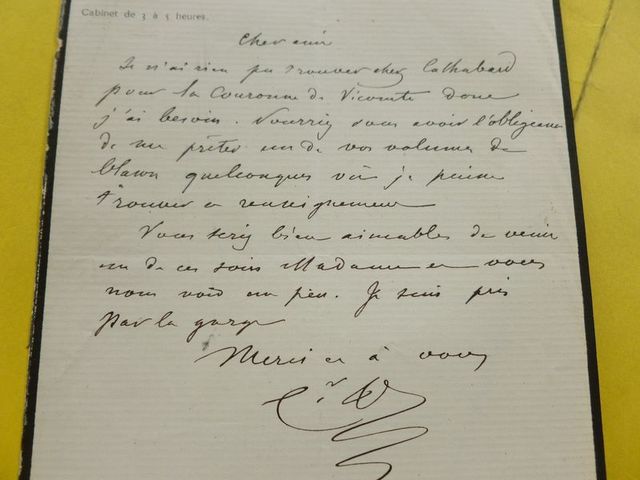 Cabinet de 3 à 5 heures.
Cher ami
Je n'ai rien pu trouver chez
pour la Couronne de Vicomte dont
j'ai besoin. Pourriez vous avoir l'obligeance
de me prêter un de vos volumes de
blason quelconques où je puisse
trouver ce renseignement
Vous seriez bien aimables de venir
un de ces soirs Madame et vous
nous voir un peu. Je suis pris
par la gorge
Merci et à vous